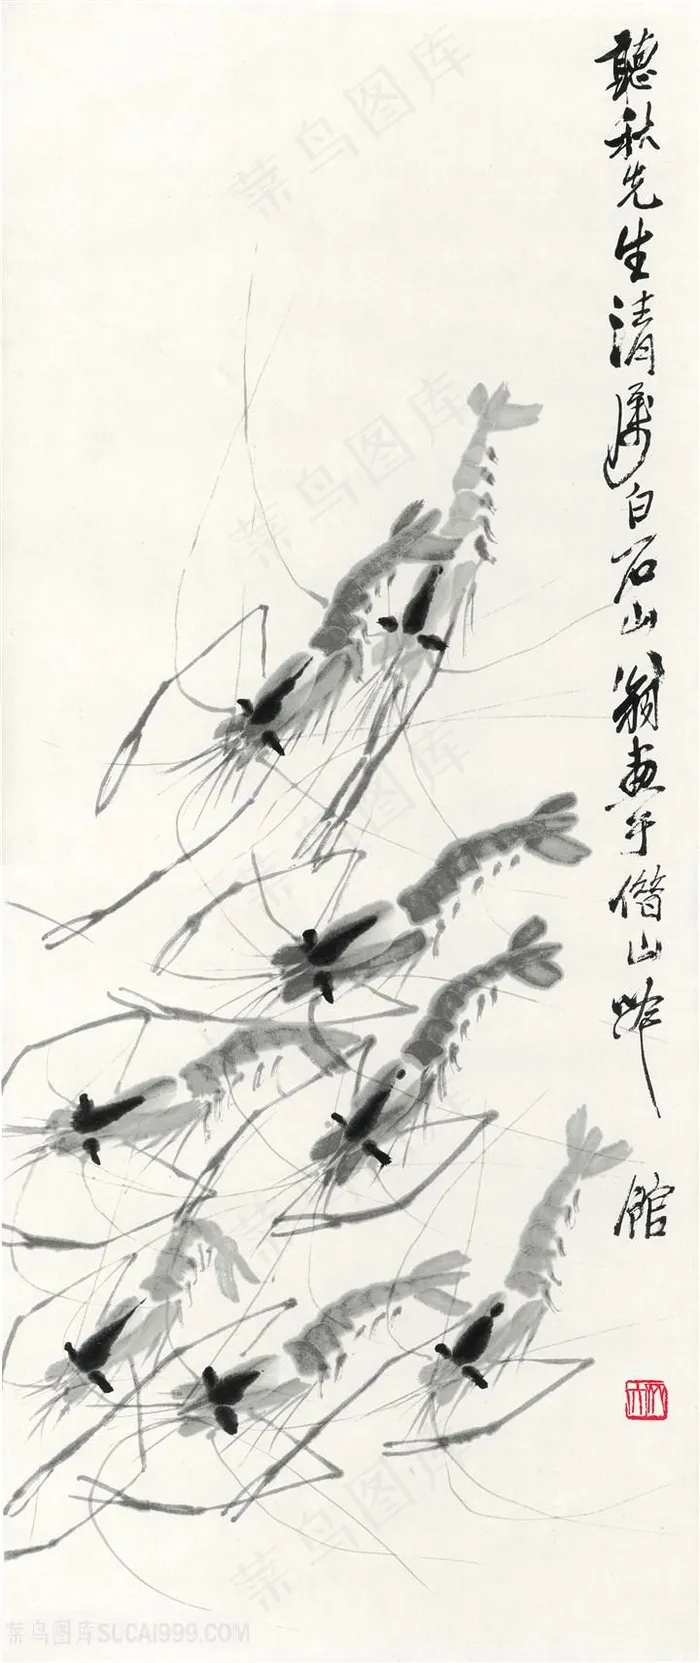 聽秋先生清屬白石山翁畫于借山吟館
菜鸟图库
菜鸟图库
菜鸟图库
菜鸟图库
菜鸟图库
菜鸟图库SUCAI999.COM